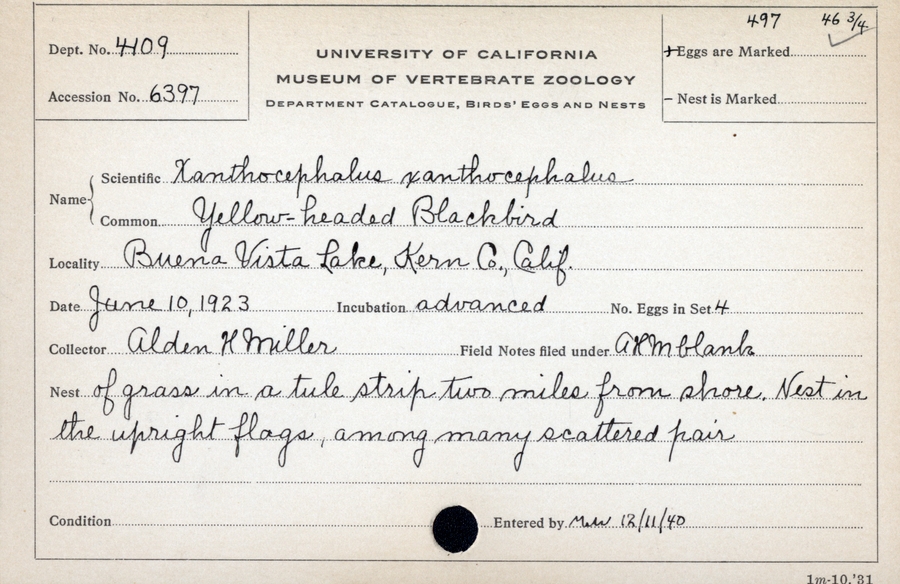 497 46 3/4
Dept. No. 4109
UNIVERSITY OF CALIFORNIA
+Eggs are Marked
MUSEUM OF VERTEBRATE ZOOLOGY
Accession No. 6397
DEPARTMENT CATALOGUE, BIRDS' EGGS AND NESTS
– Nest is Marked
Name { Scientific Xanthocephalus xanthocephalus
Common Yellow-headed Blackbird
Locality Buena Vista Lake, Kern Co., Calif.
Date June 10, 1923 Incubation advanced No. Eggs in Set 4
Collector Alden H Miller Field Notes filed under AHM blank
Nest of grass in a tule strip two miles from shore. Nest in
the upright flags, among many scattered pair
Condition Entered by 12/11/40
1m-10,'31